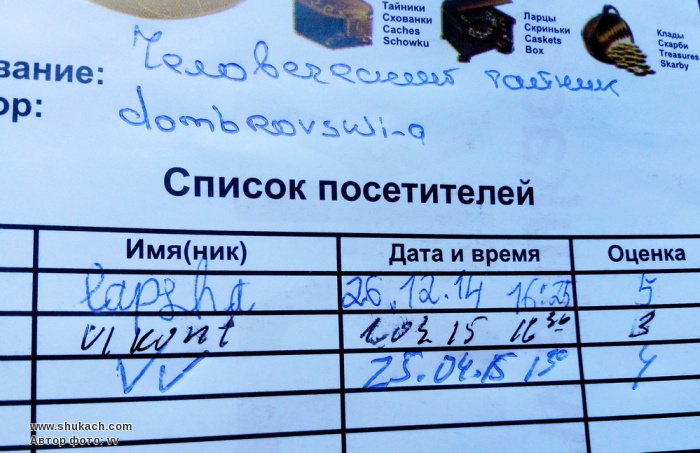 Тайники
Схованки
Caches
Schowku
Ларцы
Скриньки
Caskets
Box
Клады
Скарби
Treasures
Skarby
вание: Человеческий тайник
ор: dombrovswi-a
Список посетителей
Имя(ник) Дата и время Оценка
lapsha 26.12.14 16:25 5
vikont 15 16 30 3
VV 25.04.15 13 4
www.shukach.com
Автор фото: vv